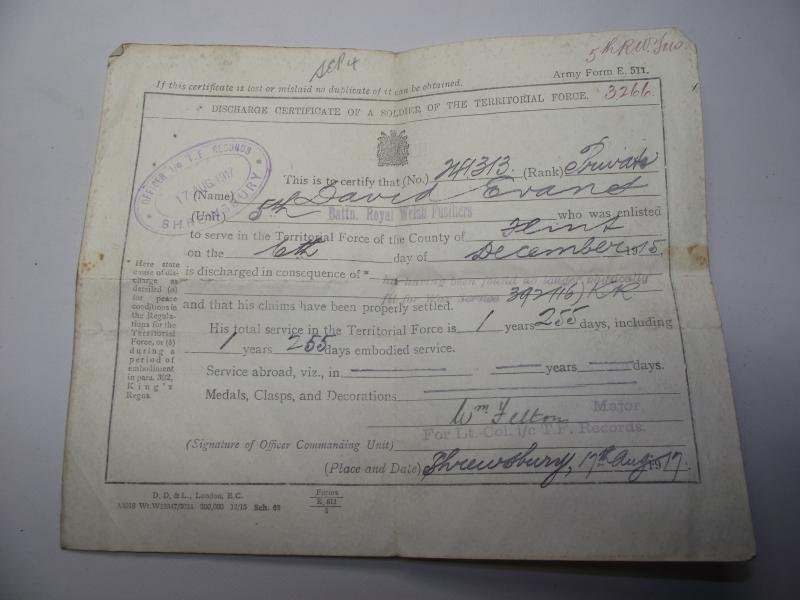 5th R.W. Fus.
SCP 4
If this certificate is lost or mislaid no duplicate of it can be obtained.
Army Form E. 511.
DISCHARGE CERTIFICATE OF A SOLDIER OF THE TERRITORIAL FORCE. 3266.
OFFICER i/c T.F. RECORDS
17 AUG. 1917
SHREWSBURY
This is to certify that (No.) 241313 (Rank) Private
(Name) David Evans
(Unit) 5th Battn. Royal Welsh Fusiliers who was enlisted
to serve in the Territorial Force of the County of Flint
on the 6th day of December 1915,
is discharged in consequence of * his having been found no longer physically
fit for war service 392 (16) KR
and that his claims have been properly settled.
His total service in the Territorial Force is 1 years 255 days, including
1 years 255 days embodied service.
Service abroad, viz., in years days.
Medals, Clasps, and Decorations
Wm Felton Major,
For Lt.-Col. i/c T.F. Records.
(Signature of Officer Commanding Unit)
(Place and Date) Shrewsbury, 17th Aug 1917.
* Here state
cause of dis-
charge as
detailed (a)
for peace
conditions in
the Regula-
tions for the
Territorial
Force, or (b)
during a
period of
embodiment
in para. 392,
King's
Regns.
D. D. & L., London, E.C.
Forms
E. 511
3
Wt. 300,000 12/15 Sch. 63